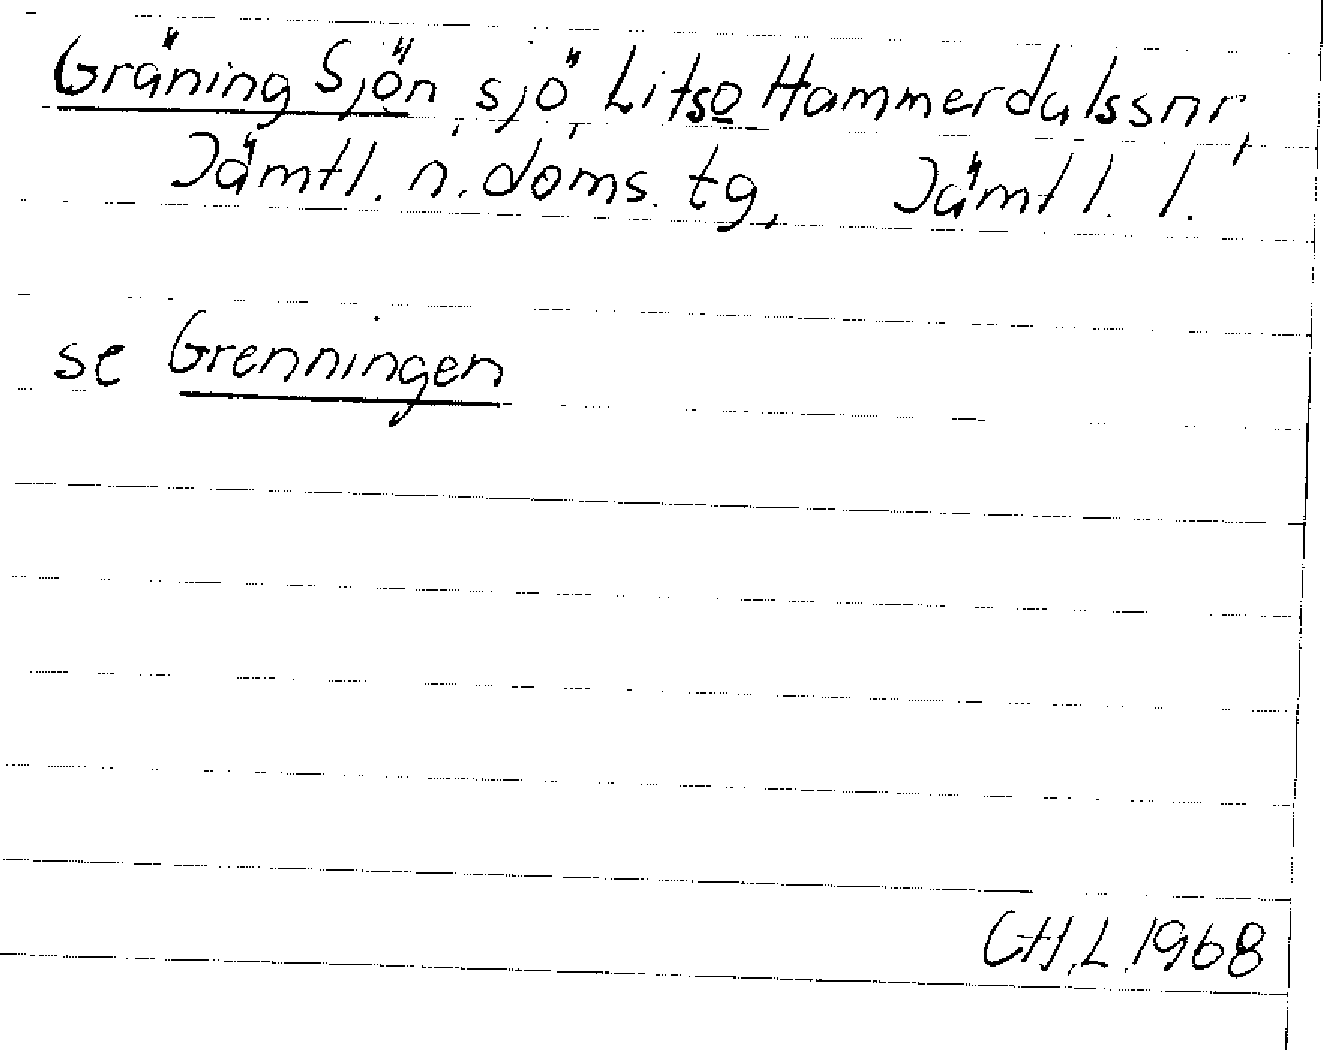 Gräning Sjön, sjö, Lits o Hammerdalssnr,
Jämtl. n. doms. tg, Jämtl. l.
se Grenningen
G.H.L. 1968